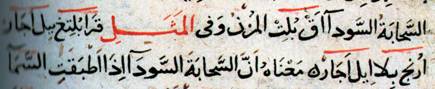 السحابة السودا اق بلت المزن وفى المثل قرا بلتخ بيل اجار
ارنج بلا ايل اجاره معناه ان السحابة السودا اذا اطبقت السما